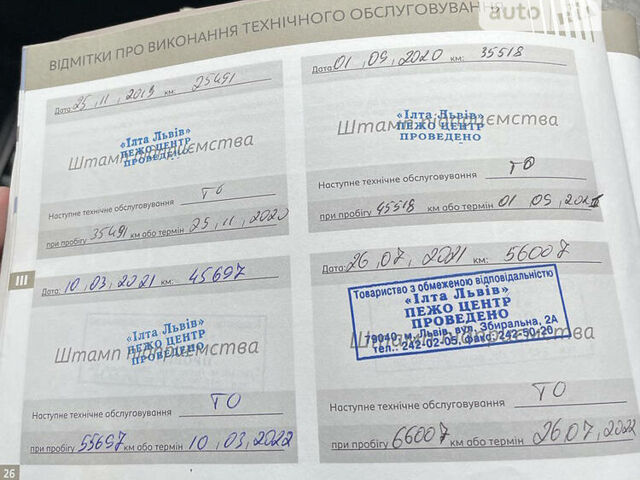 auto
ВІДМІТКИ ПРО ВИКОНАННЯ ТЕХНІЧНОГО ОБСЛУГОВУВАННЯ
Дата: 25, 11, 2019 км: 25491
«Ілта Львів»
ПЕЖО ЦЕНТР
ПРОВЕДЕНО
Штамп підприємства
Наступне технічне обслуговування ТО
при пробігу 35491 км або термін 25, 11, 2020
Дата: 01, 09, 2020 км: 35518
«Ілта Львів»
ПЕЖО ЦЕНТР
ПРОВЕДЕНО
Штамп підприємства
Наступне технічне обслуговування ТО
при пробігу 45518 км або термін 01 09, 2021
III
Дата: 10, 03, 2021 км: 45697
«Ілта Львів»
ПЕЖО ЦЕНТР
ПРОВЕДЕНО
Штамп підприємства
Наступне технічне обслуговування ТО
при пробігу 55697 км або термін 10, 03, 2022
Дата: 26, 07, 2021 км: 56007
Товариство з обмеженою відповідальністю
«Ілта Львів»
ПЕЖО ЦЕНТР
ПРОВЕДЕНО
79040, м. Львів, вул. Збиральна, 2А
тел.: 242-02-05, факс: 242-50-20
Штамп підприємства
Наступне технічне обслуговування ТО
при пробігу 66007 км або термін 26, 07, 2022
26